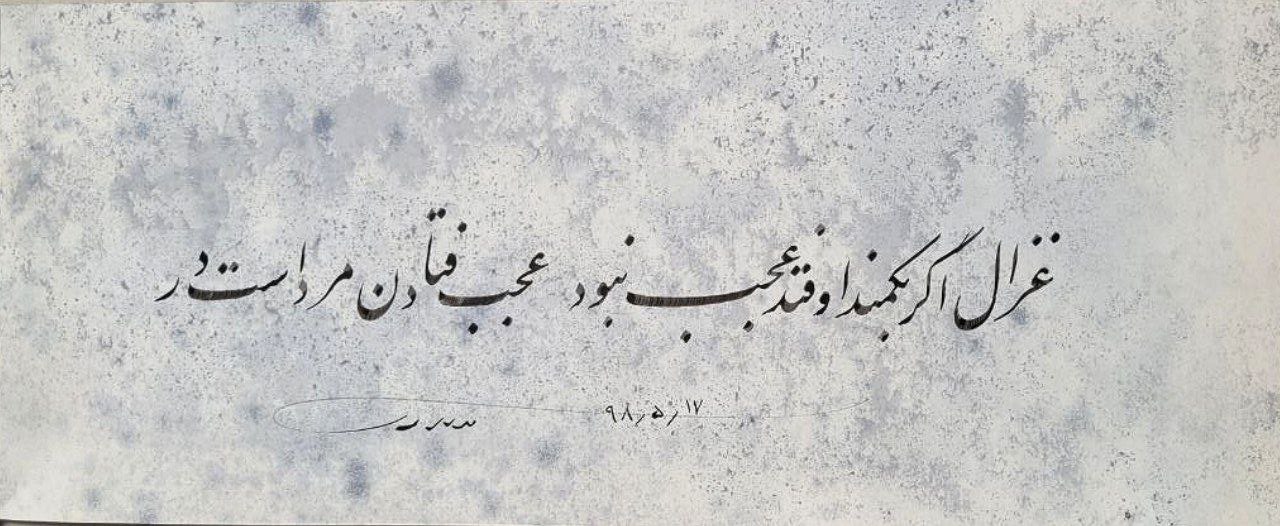 غزال اگر بکمند اوفتد عجب نبود عجب فتادن مرد است در
۹۸٫۵٫۱۷